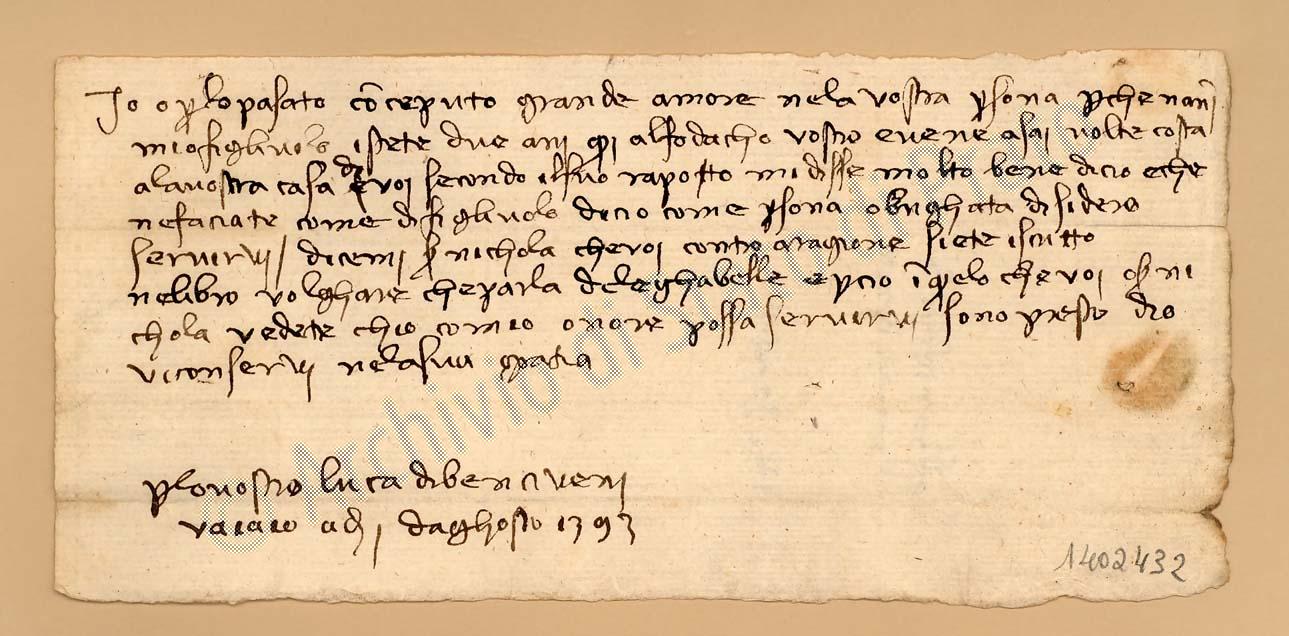 Io o p lo pasato cōceputo grande amore nela vostra psona pche nani
mio figliuolo istete due ani qi al fodacho vostro e vene asai volte costa
ala vostra casa e di voi secondo il suo raporto mi disse molto bene di cio e che
ne faciate come di figliuolo di cio come psona obrighata disidero
servirvi / dicemi s nichola che voi contro a ragione siete iscritto
ne libro volghare che parla dele ghabelle e pcio ī quelo che voi o s ni
chola vedete chio co mio onore possa servirvi sono presto dio
vi conservi nela sua gratia
p lo vostro luca di bencivenj
vaiaio a dj daghosto 1393
1402432
© Archivio di Stato di Prato